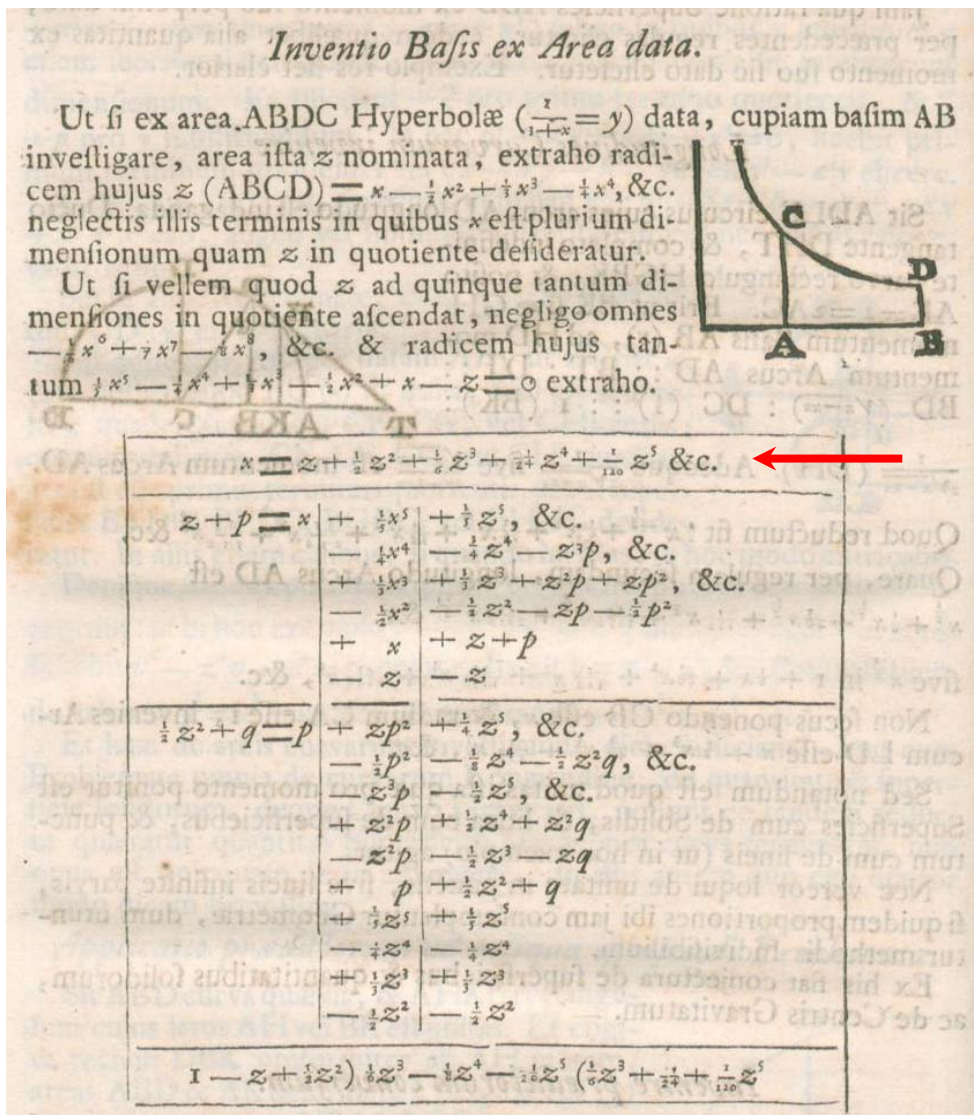 Inventio Baſis ex Area data.
Ut ſi ex area ABDC Hyperbolæ (1/(1+x) = y) data, cupiam baſim AB
inveſtigare, area iſta z nominata, extraho radi-
cem hujus z (ABCD) = x — ½x² + ⅓x³ — ¼x⁴, &c.
neglectis illis terminis in quibus x eſt plurium di-
menſionum quam z in quotiente deſideratur.
Ut ſi vellem quod z ad quinque tantum di-
menſiones in quotiente aſcendat, negligo omnes
— ⅙x⁶ + ⅐x⁷ — ⅛x⁸, &c. & radicem hujus tan-
tum ⅕x⁵ — ¼x⁴ + ⅓x³ — ½x² + x — z = 0 extraho.
C
D
A
B
x = z + ½z² + ⅙z³ + 1/24 z⁴ + 1/120 z⁵ &c.
z + p = x | + ⅕x⁵ | + ⅕z⁵, &c.
— ¼x⁴ | — ¼z⁴ — z³p, &c.
+ ⅓x³ | + ⅓z³ + z²p + zp², &c.
— ½x² | — ½z² — zp — ½p²
+ x | + z + p
— z | — z
½z² + q = p | + zp² | + ¼z⁵, &c.
— ½p² | — ⅛z⁴ — ½z²q, &c.
— z³p | — ½z⁵, &c.
+ z²p | + ½z⁴ + z²q
— zp | — ½z³ — zq
+ p | + ½z² + q
+ ⅕z⁵ | + ⅕z⁵
— ¼z⁴ | — ¼z⁴
+ ⅓z³ | + ⅓z³
— ½z² | — ½z²
1 — z + ½z²) ⅙z³ — ⅛z⁴ — 1/20 z⁵ (⅙z³ + 1/24 + 1/120 z⁵